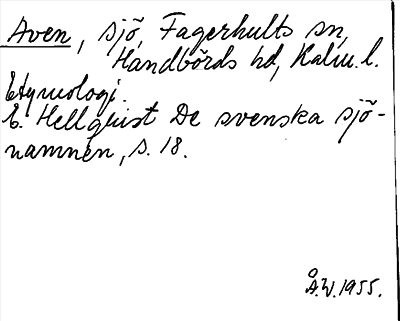 Aven, sjö, Fagerhults sn,
Handbörds hd, Kalm. l.
Etymologi.
E. Hellquist De svenska sjö-
namnen, s. 18.
Å.W. 1955.